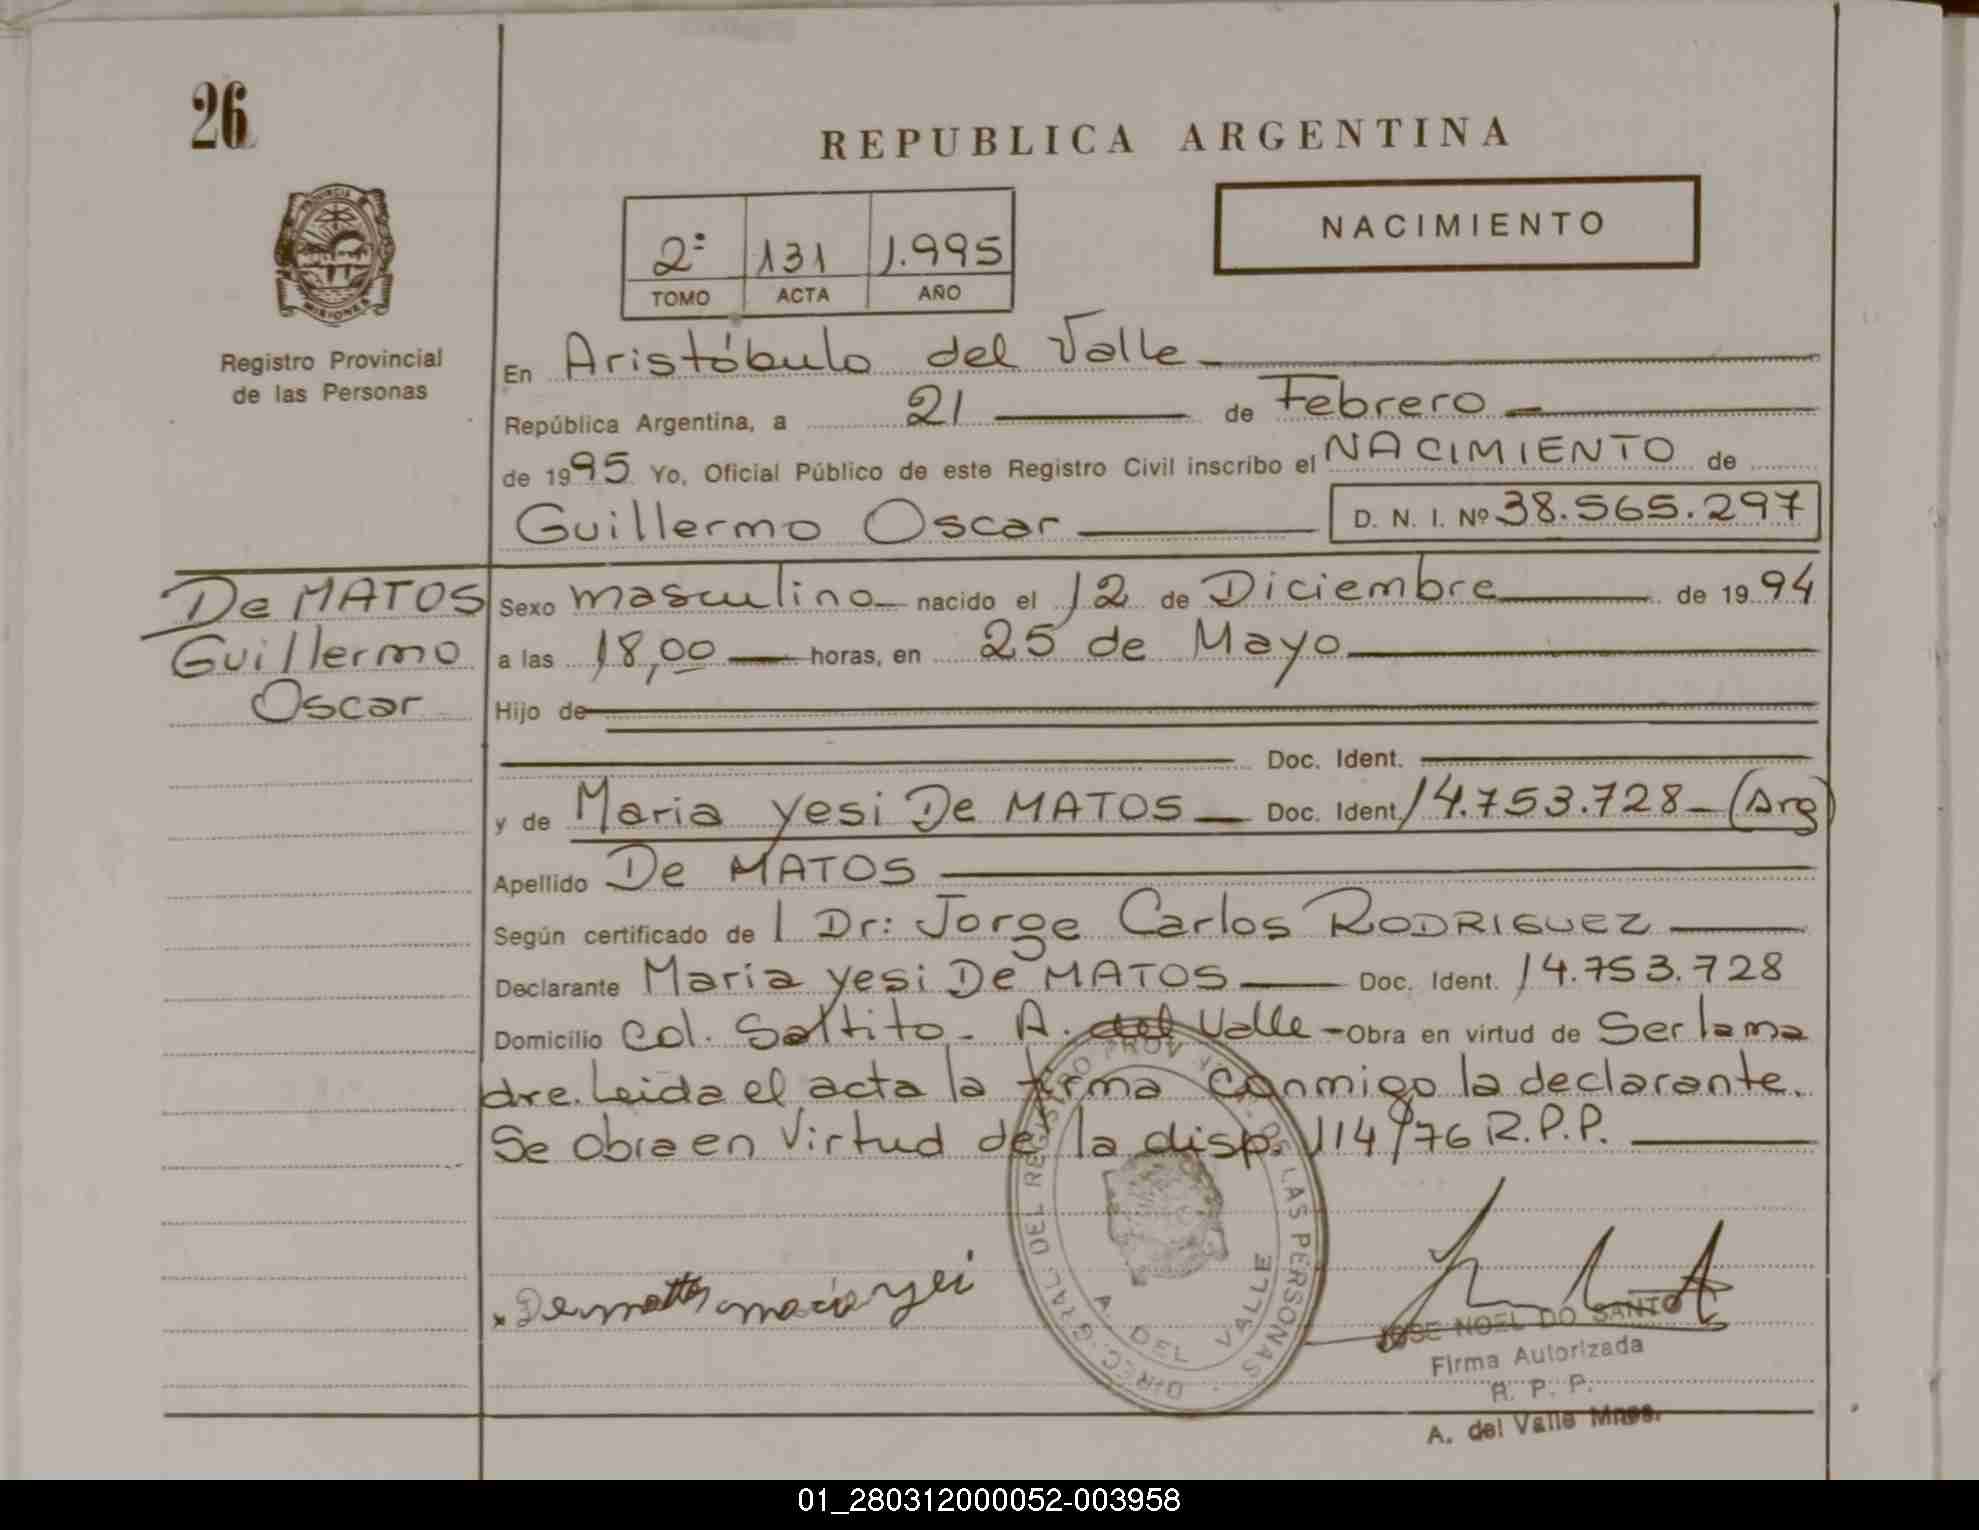 26
REPUBLICA ARGENTINA
PROVINCIA
MISIONES
Registro Provincial
de las Personas
2º 131 1.995
TOMO ACTA AÑO
NACIMIENTO
En Aristóbulo del Valle
República Argentina, a 21 de Febrero
de 1995 Yo, Oficial Público de este Registro Civil inscribo el NACIMIENTO de
Guillermo Oscar D. N. I. Nº 38.565.297
De MATOS
Guillermo
Oscar
Sexo masculino nacido el 12 de Diciembre de 1994
a las 18,00 horas, en 25 de Mayo
Hijo de
Doc. Ident.
y de Maria yesi De MATOS Doc. Ident. 14.753.728 (Arg)
Apellido De MATOS
Según certificado de l Dr: Jorge Carlos RODRIGUEZ
Declarante Maria yesi De MATOS Doc. Ident. 14.753.728
Domicilio Col. Saltito - A. del Valle - Obra en virtud de Ser la ma
dre. Leida el acta la firma conmigo la declarante.
Se obra en Virtud de la disp. 114/76 R.P.P.
DIREC. GRAL DEL REGISTRO PROV. DE LAS PERSONAS
A. DEL VALLE
JOSE NOEL DO SANTO
Firma Autorizada
R. P. P.
A. del Valle Mnes.
01_280312000052-003958